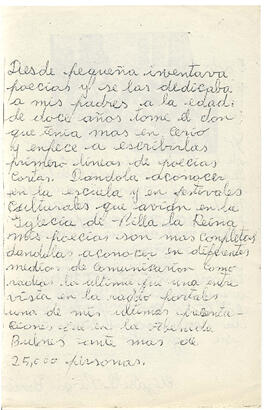 Desde pequeña inventava
poecias y se las dedicaba
a mis padres a la edad
de doce años tome el don
que tenia mas en cerio
y enpece a escribirlas
primero lineas de poecias
cortas. Dandola aconocer
en la escuela y en festivales
culturales que avian en la
Iglecia de Villa la Reina
mis poecias son mas completas
dandolas aconocer en diferentes
medios de comunicacion como
radios la ultima fue una entre
vista en la radio portales
una de mis ultimas precenta-
ciones fue en la Abenida
Bulnes ante mas de
25,000 personas.